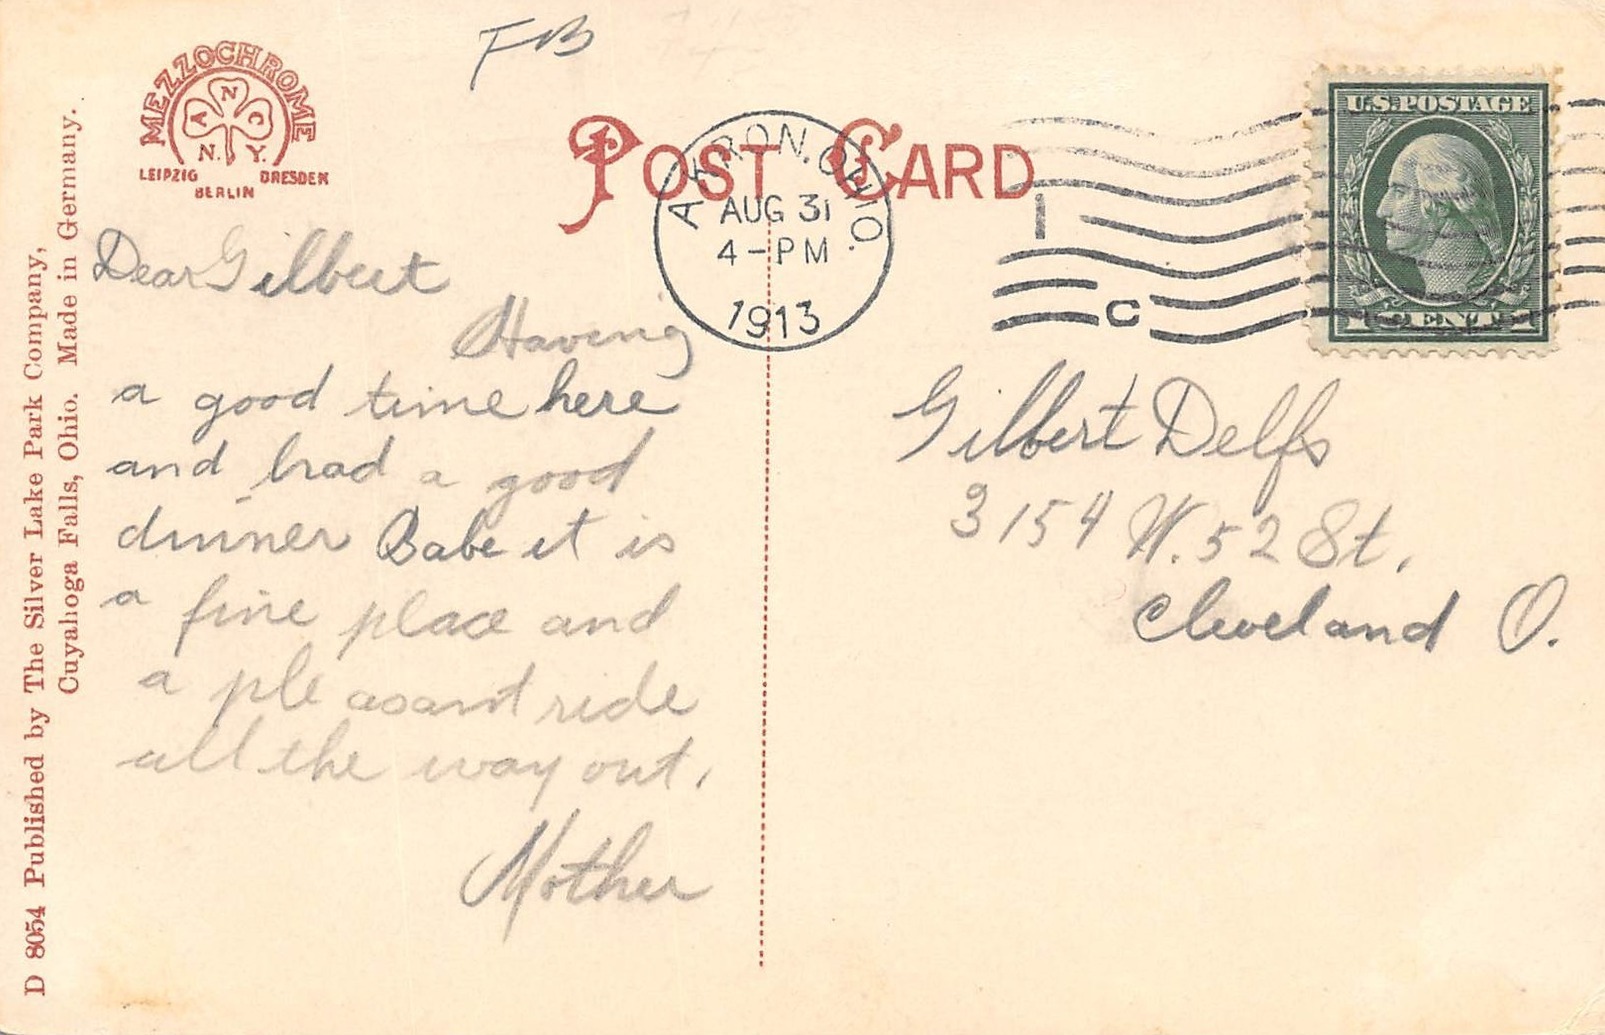 FB
MEZZOCHROME
A N C
N. Y.
LEIPZIG DRESDEN
BERLIN
POST CARD
AKRON, OHIO.
AUG 31
4-PM
1913
1
C
U.S. POSTAGE
1 CENT 1
D 8054 Published by The Silver Lake Park Company,
Cuyahoga Falls, Ohio. Made in Germany.
Dear Gilbert
Having
a good time here
and had a good
dinner Babe it is
a fine place and
a pleasant ride
all the way out.
Mother
Gilbert Delfs
3154 W. 52 St.
Cleveland O.